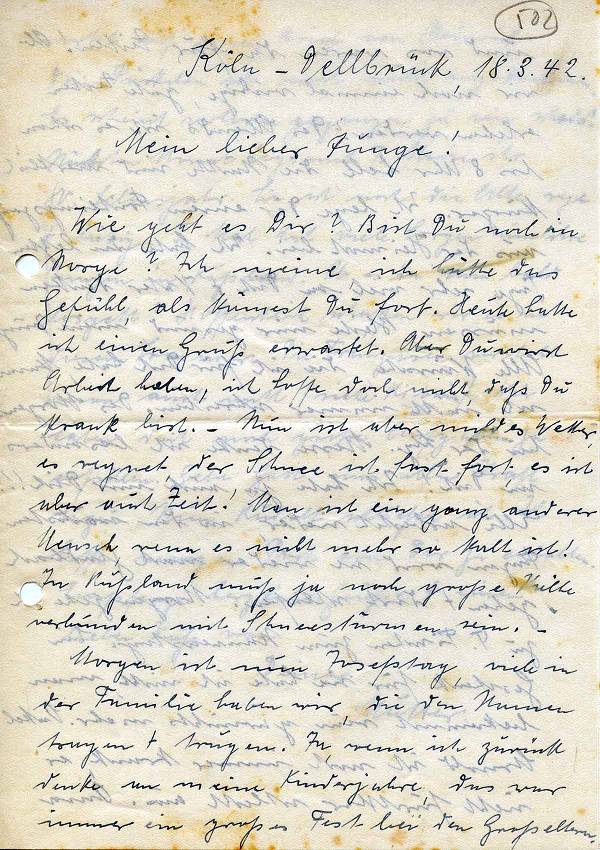 102
Köln - Dellbrück, 18.3.42.
Mein lieber Junge!
Wie geht es Dir? Bist Du noch in
? Ich meine ich hätte das
Gefühl, als kämest Du fort. Heute hatte
ich einen Gruß erwartet. Aber Du wirst
Arbeit haben, ich hoffe doch nicht, daß Du
krank bist. - Nun ist aber mildes Wetter,
es regnet, der Schnee ist fast fort, es ist
aber auch Zeit! Man ist ein ganz anderer
Mensch, wenn es nicht mehr so kalt ist!
In Rußland muß ja noch große Kälte
verbunden mit Schneestürmen sein. -
Morgen ist nun Josefstag, viele in
der Familie haben wir, die den Namen
tragen + trugen. Ja, wenn ich zurück
denke an meine Kinderjahre, das war
immer ein großes Fest bei den Großeltern.